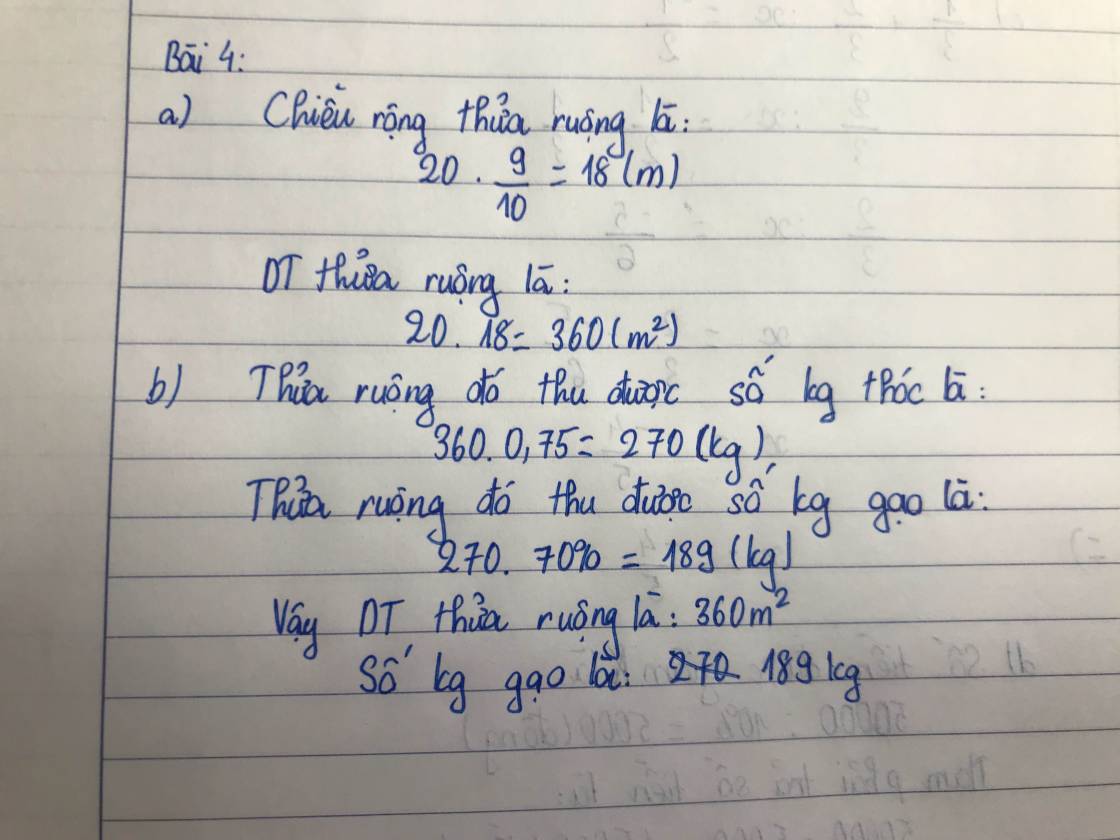 Bài 4:
a) Chiều rộng thửa ruộng là:
20 . 9/10 = 18 (m)
DT thửa ruộng là:
20 . 18 = 360 (m²)
b) Thửa ruộng đó thu được số kg thóc là:
360 . 0,75 = 270 (kg)
Thửa ruộng đó thu được số kg gạo là:
270 . 70% = 189 (kg)
Vậy DT thửa ruộng là: 360m²
Số kg gạo là: 270 189 kg